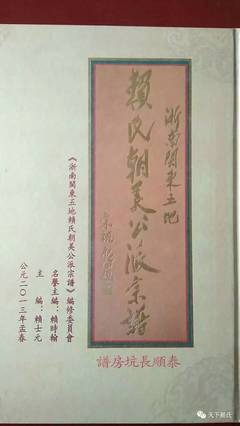 浙南閩東五地
賴氏朝美公派宗譜
《浙南閩東五地賴氏朝美公派宗譜》編修委員會
名譽主編：賴時翰
主編：賴士元
公元二〇一三年孟春
泰順長坑房譜
天下賴氏